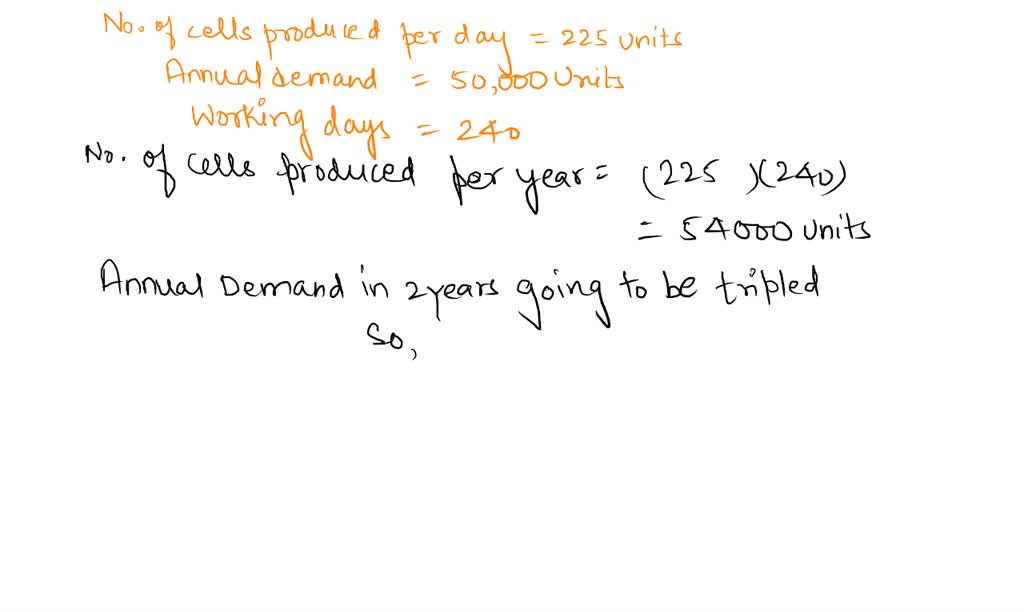 No. of cells produced per day = 225 units
Annual demand = 50,000 Units
Working days = 240
No. of cells produced per year = (225)(240)
= 54000 units
Annual Demand in 2 years going to be tripled
So,